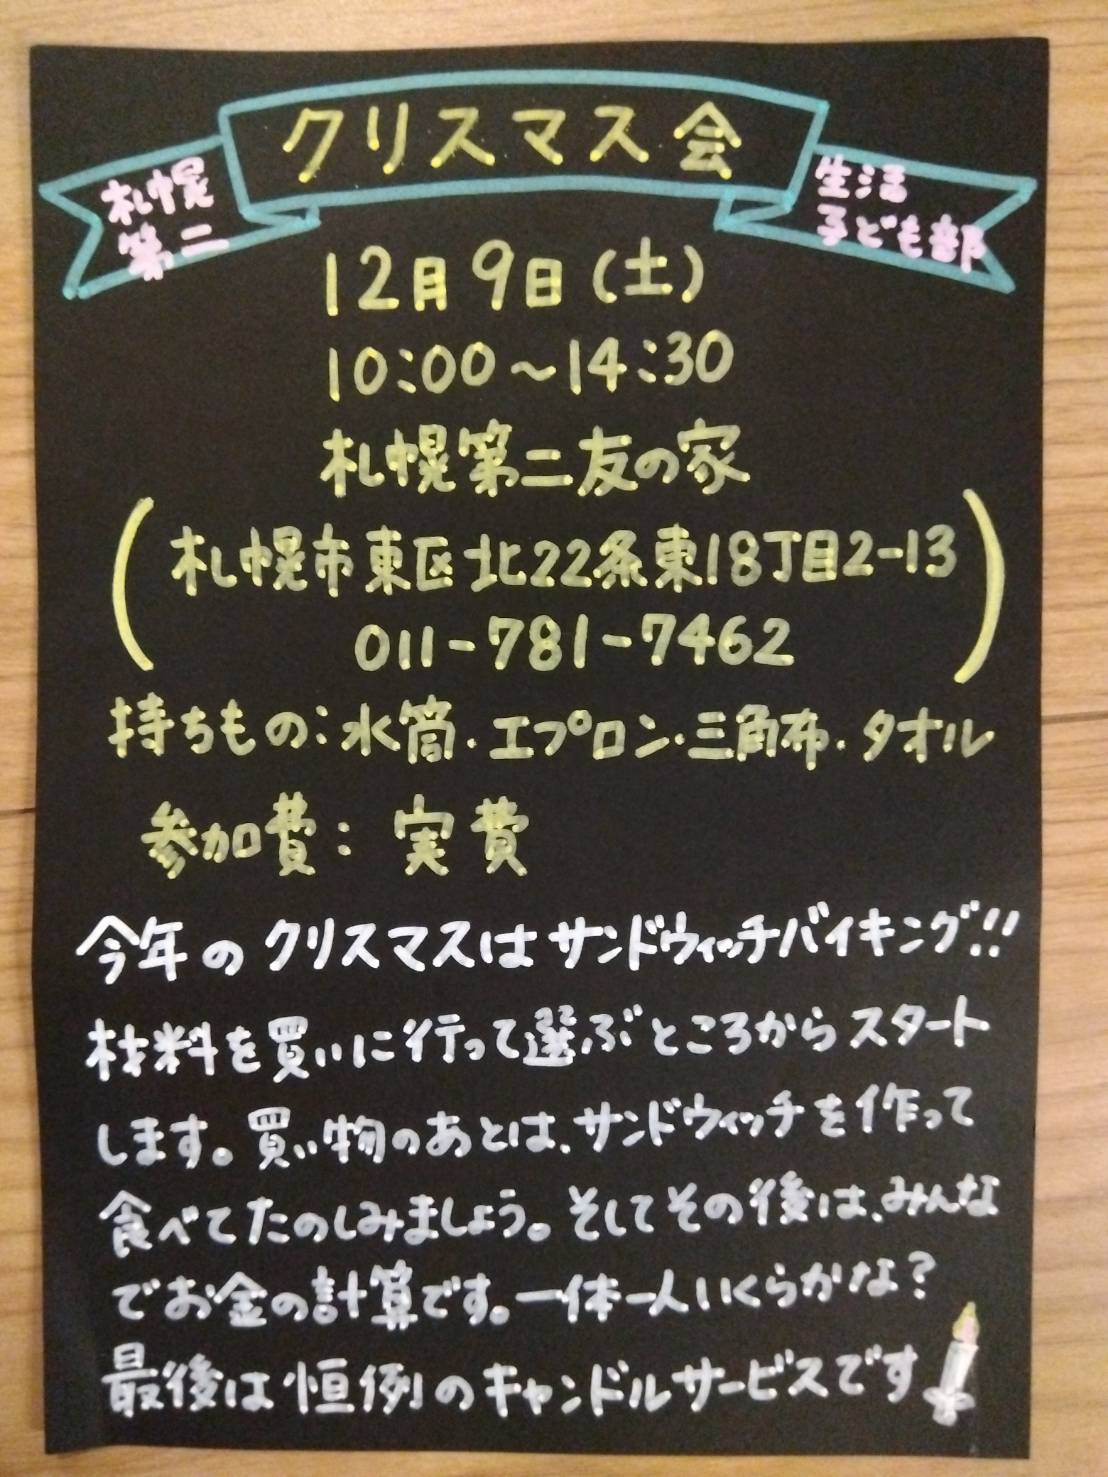 クリスマス会
札幌
第二
生活
子ども部
12月9日(土)
10:00〜14:30
札幌第二友の家
(札幌市東区北22条東18丁目2-13
011-781-7462)
持ちもの:水筒・エプロン・三角布・タオル
参加費: 実費
今年のクリスマスはサンドウィッチバイキング!!
材料を買いに行って選ぶところからスタート
します。買い物のあとは、サンドウィッチを作って
食べてたのしみましょう。そしてその後は、みんな
でお金の計算です。一体一人いくらかな?
最後は恒例のキャンドルサービスです